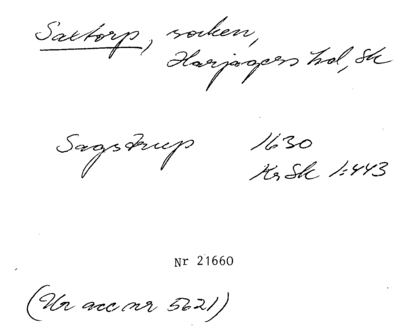 Saxtorp, socken,
Harjagers hd, Sk
Sagstrup 1630
KrSk 1:443
Nr 21660
(Ur acc nr 5621)